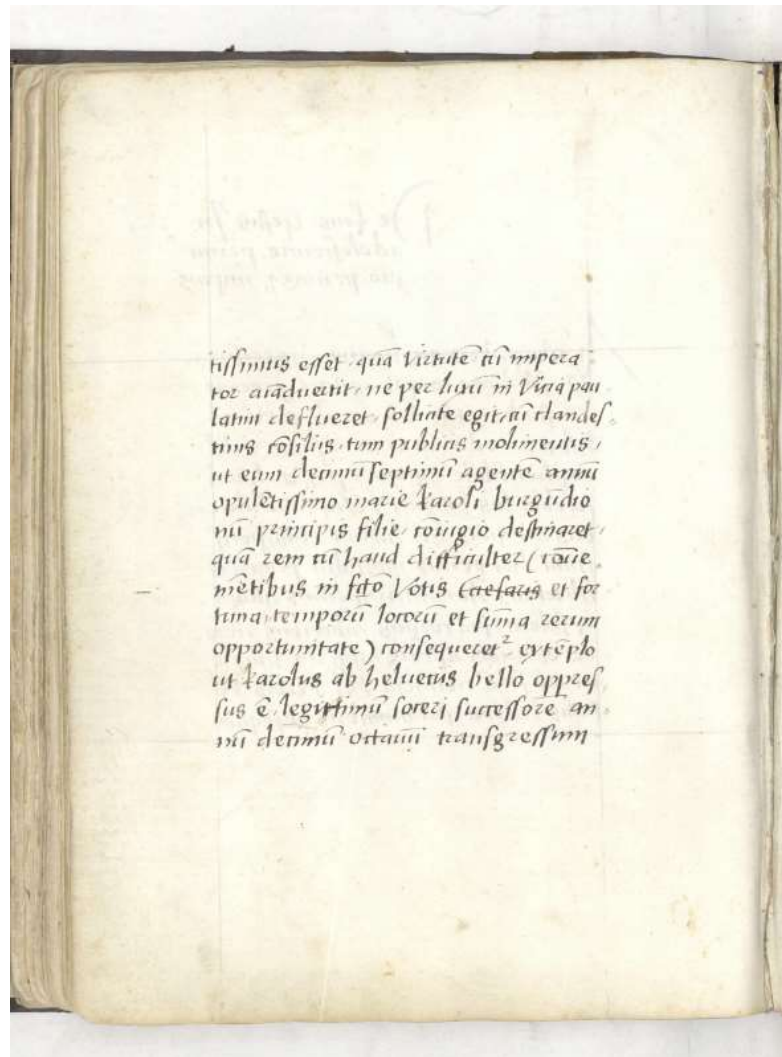 tissimus esset quā virtutē cū impera
tor aīadvertit, ne per luxū in vicia pau
latim deflueret, sollicite egit, cū clandes
tinis cōsiliis, tum publicis molimentis,
ut eum decimū septimū agentē annū
opulētissimo marie karoli burgūdio
nū principis filie, cōiugio destinaret,
quā rem cū haud difficulter (cōue
niētibus in votis Caesaris et for
tuna, temporū locorū et sūma rerum
opportunitate) consequeret² extēplo
ut karolus ab helvetiis bello oppres
sus ē, legittimū soceri successorē an
nū decimū octauū transgressum